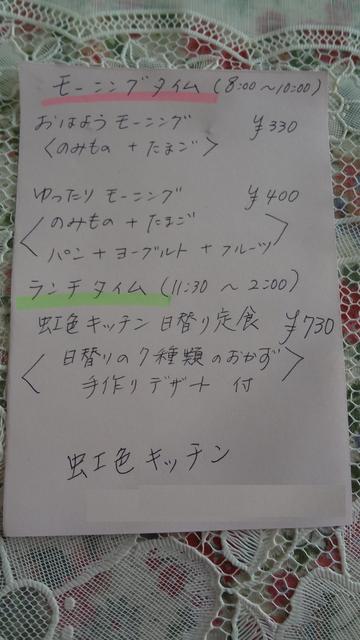 モーニングタイム (8:00 〜 10:00)
おはよう モーニング ¥330
〈のみもの + たまご〉
ゆったり モーニング ¥400
〈のみもの + たまご
パン + ヨーグルト + フルーツ〉
ランチタイム (11:30 〜 2:00)
虹色キッチン 日替り定食 ¥730
〈日替りの7種類のおかず
手作りデザート 付〉
虹色キッチン